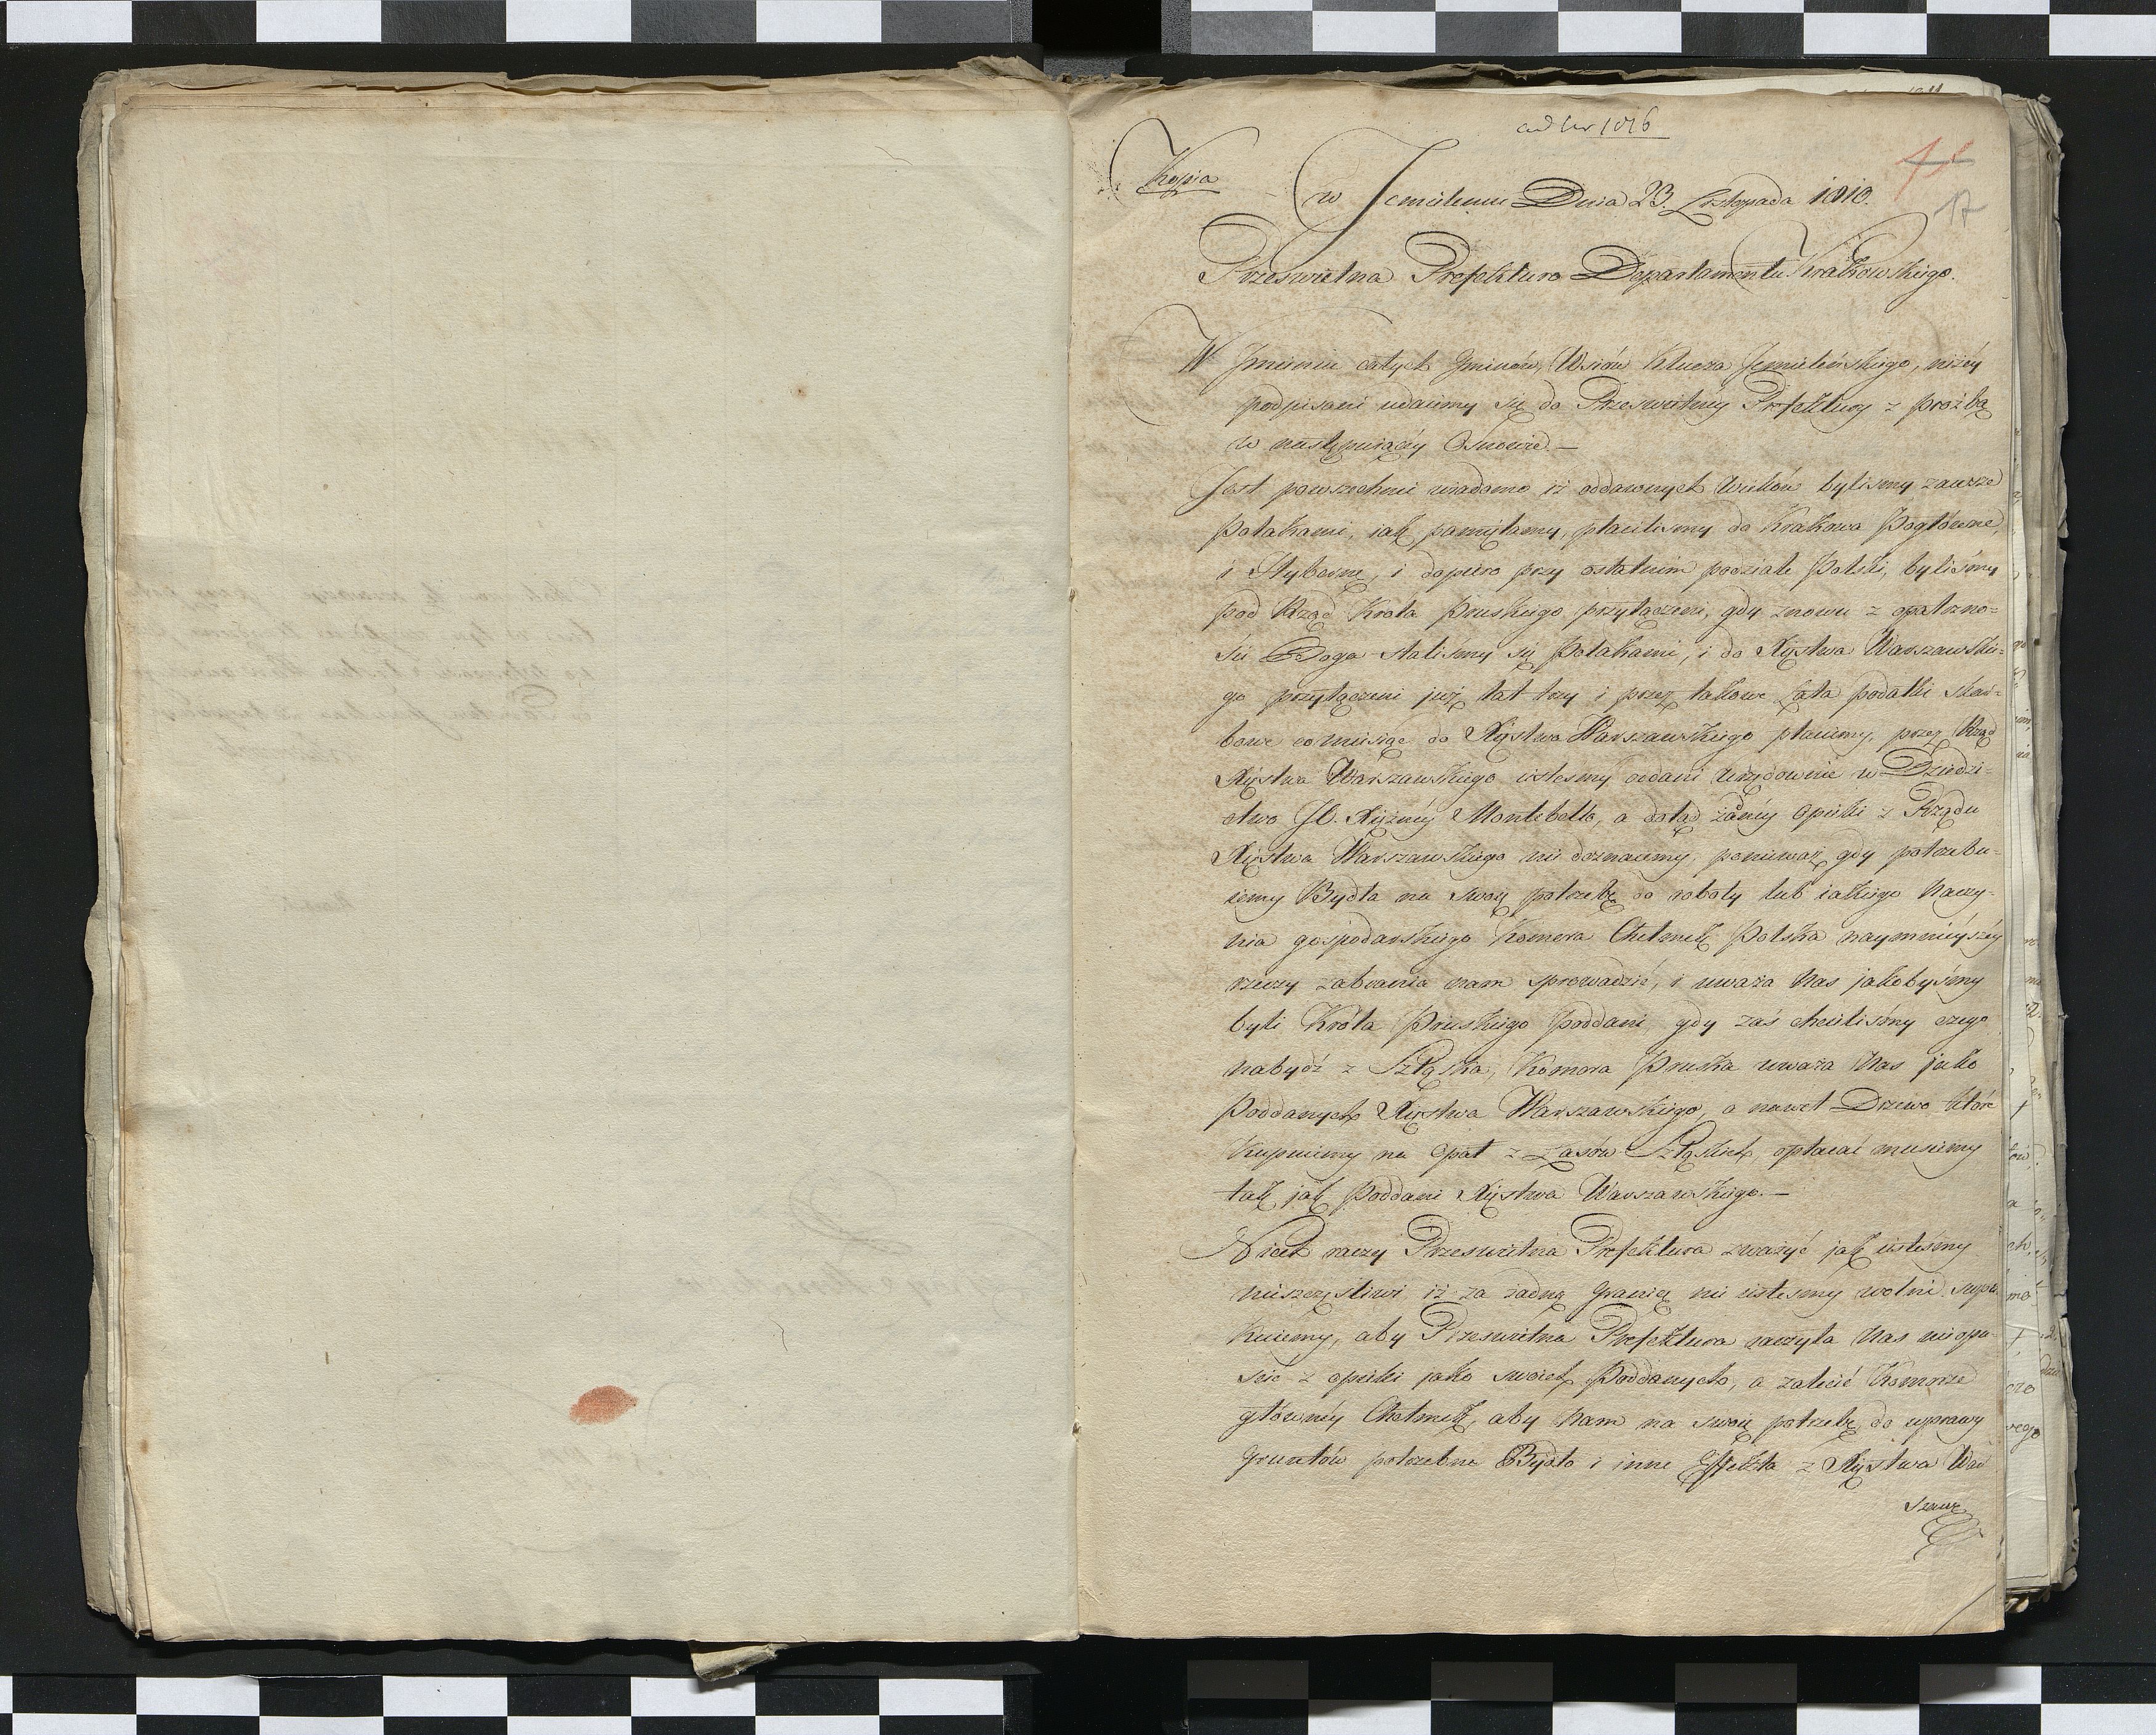 ad Nr 1016
Kopia
w Jemieleniu Dnia 23. Listopada 1810.
17
Prześwietna Prefekturo Departamentu Krakowskiego.
W Jmieniu całych Gminów, Wsiów Klucza Jemieleńskiego, niżéy
podpisani udaiemy się do Prześwietnéy Prefektury z proźbą
w następuiącéy Osnowie. —
Jest powszechnie wiadomo iż oddawnych Wieków byliśmy zawsze
Polakami, iak pamiętamy, płaciliśmy do Krakowa Pogłówne,
i Hyberne, i dopiero przy ostatnim podziale Polski, byliśmy
pod Rząd Króla Pruskiego przyłączeni, gdy znowu z opatrzno=
ści Boga staliśmy się Polakami, i do Xięstwa Warszawskie=
go przyłączeni już lat trzy i przez takowe Lata podatki skar=
bowe co miesiąc do Xięstwa Warszawskiego płaciemy, przez Rząd
Xięstwa Warszawskiego iesteśmy oddani urzędownie w Dziedzi=
ctwo JO. Xiężnéy Montebello, a dotąd żadnéy Opieki z Rządu
Xięstwa Warszawskiego nie doznaiemy, ponieważ gdy potrzebu=
iemy Bydła na swoię potrzebę do roboty lub iakiego Naczy=
nia gospodarskiego Komora Chełmek Polska naymnieyszéy
rzeczy zabrania nam sprowadzić, i uważa Nas jakobyśmy
byli Króla Pruskiego Poddani, gdy zaś chcieliśmy czego
nabydź z Szląska, Komora Pruska uważa Nas jako
Poddanych Xięstwa Warszawskiego, a nawet Drzewo które
kupuiemy na Opał z Lasów Szląskich, opłacać musiemy
tak jak Poddani Xięstwa Warszawskiego. —
Niech raczy Prześwietna Prefektura zważyć jak iesteśmy
nieszczęśliwi iż za żadną Granicę nie iesteśmy wolni
kuiemy, aby Prześwietna Prefektura raczyła Nas nieopu=
ścić z opieki jako swoich Poddanych, a zalecić Komorze
główney Chełmek, aby Nam na swoię potrzebę do uprawy
Gruntów potrzebne Bydło i inne Effekta z Xięstwa War
szaw